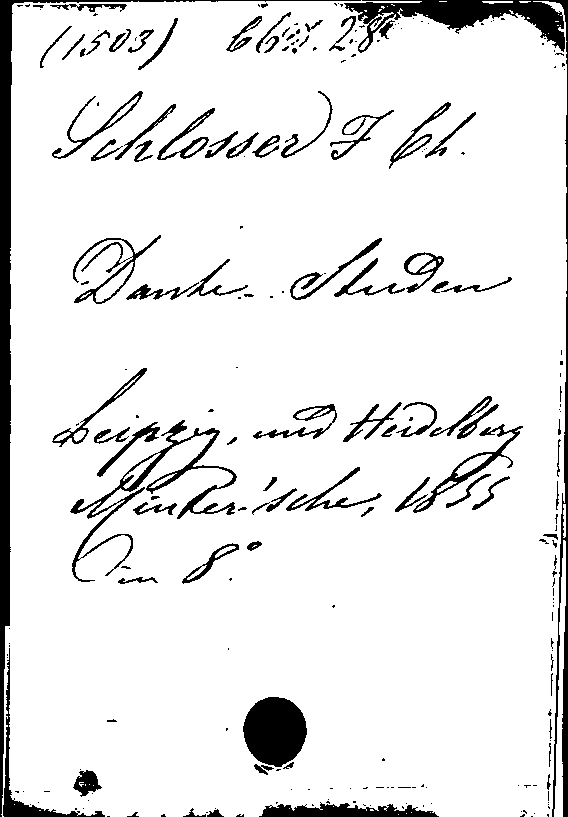 (1503) 28
Schlosser F Ch.
Dante- Studen
Leipzig, und Heidelberg
Winter'sche, 1855
in 8°